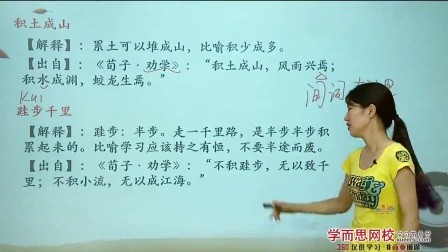 积土成山
【解释】：累土可以堆成山，比喻积少成多。
【出自】：《荀子·劝学》：“积土成山，风雨兴焉；
积水成渊，蛟龙生焉。”
Kuǐ
跬步千里
【解释】：跬步：半步。走一千里路，是半步半步积
累起来的。比喻学习应该持之有恒，不要半途而废。
【出自】：《荀子·劝学》：“不积跬步，无以致千
里；不积小流，无以成江海。”
学而思网校